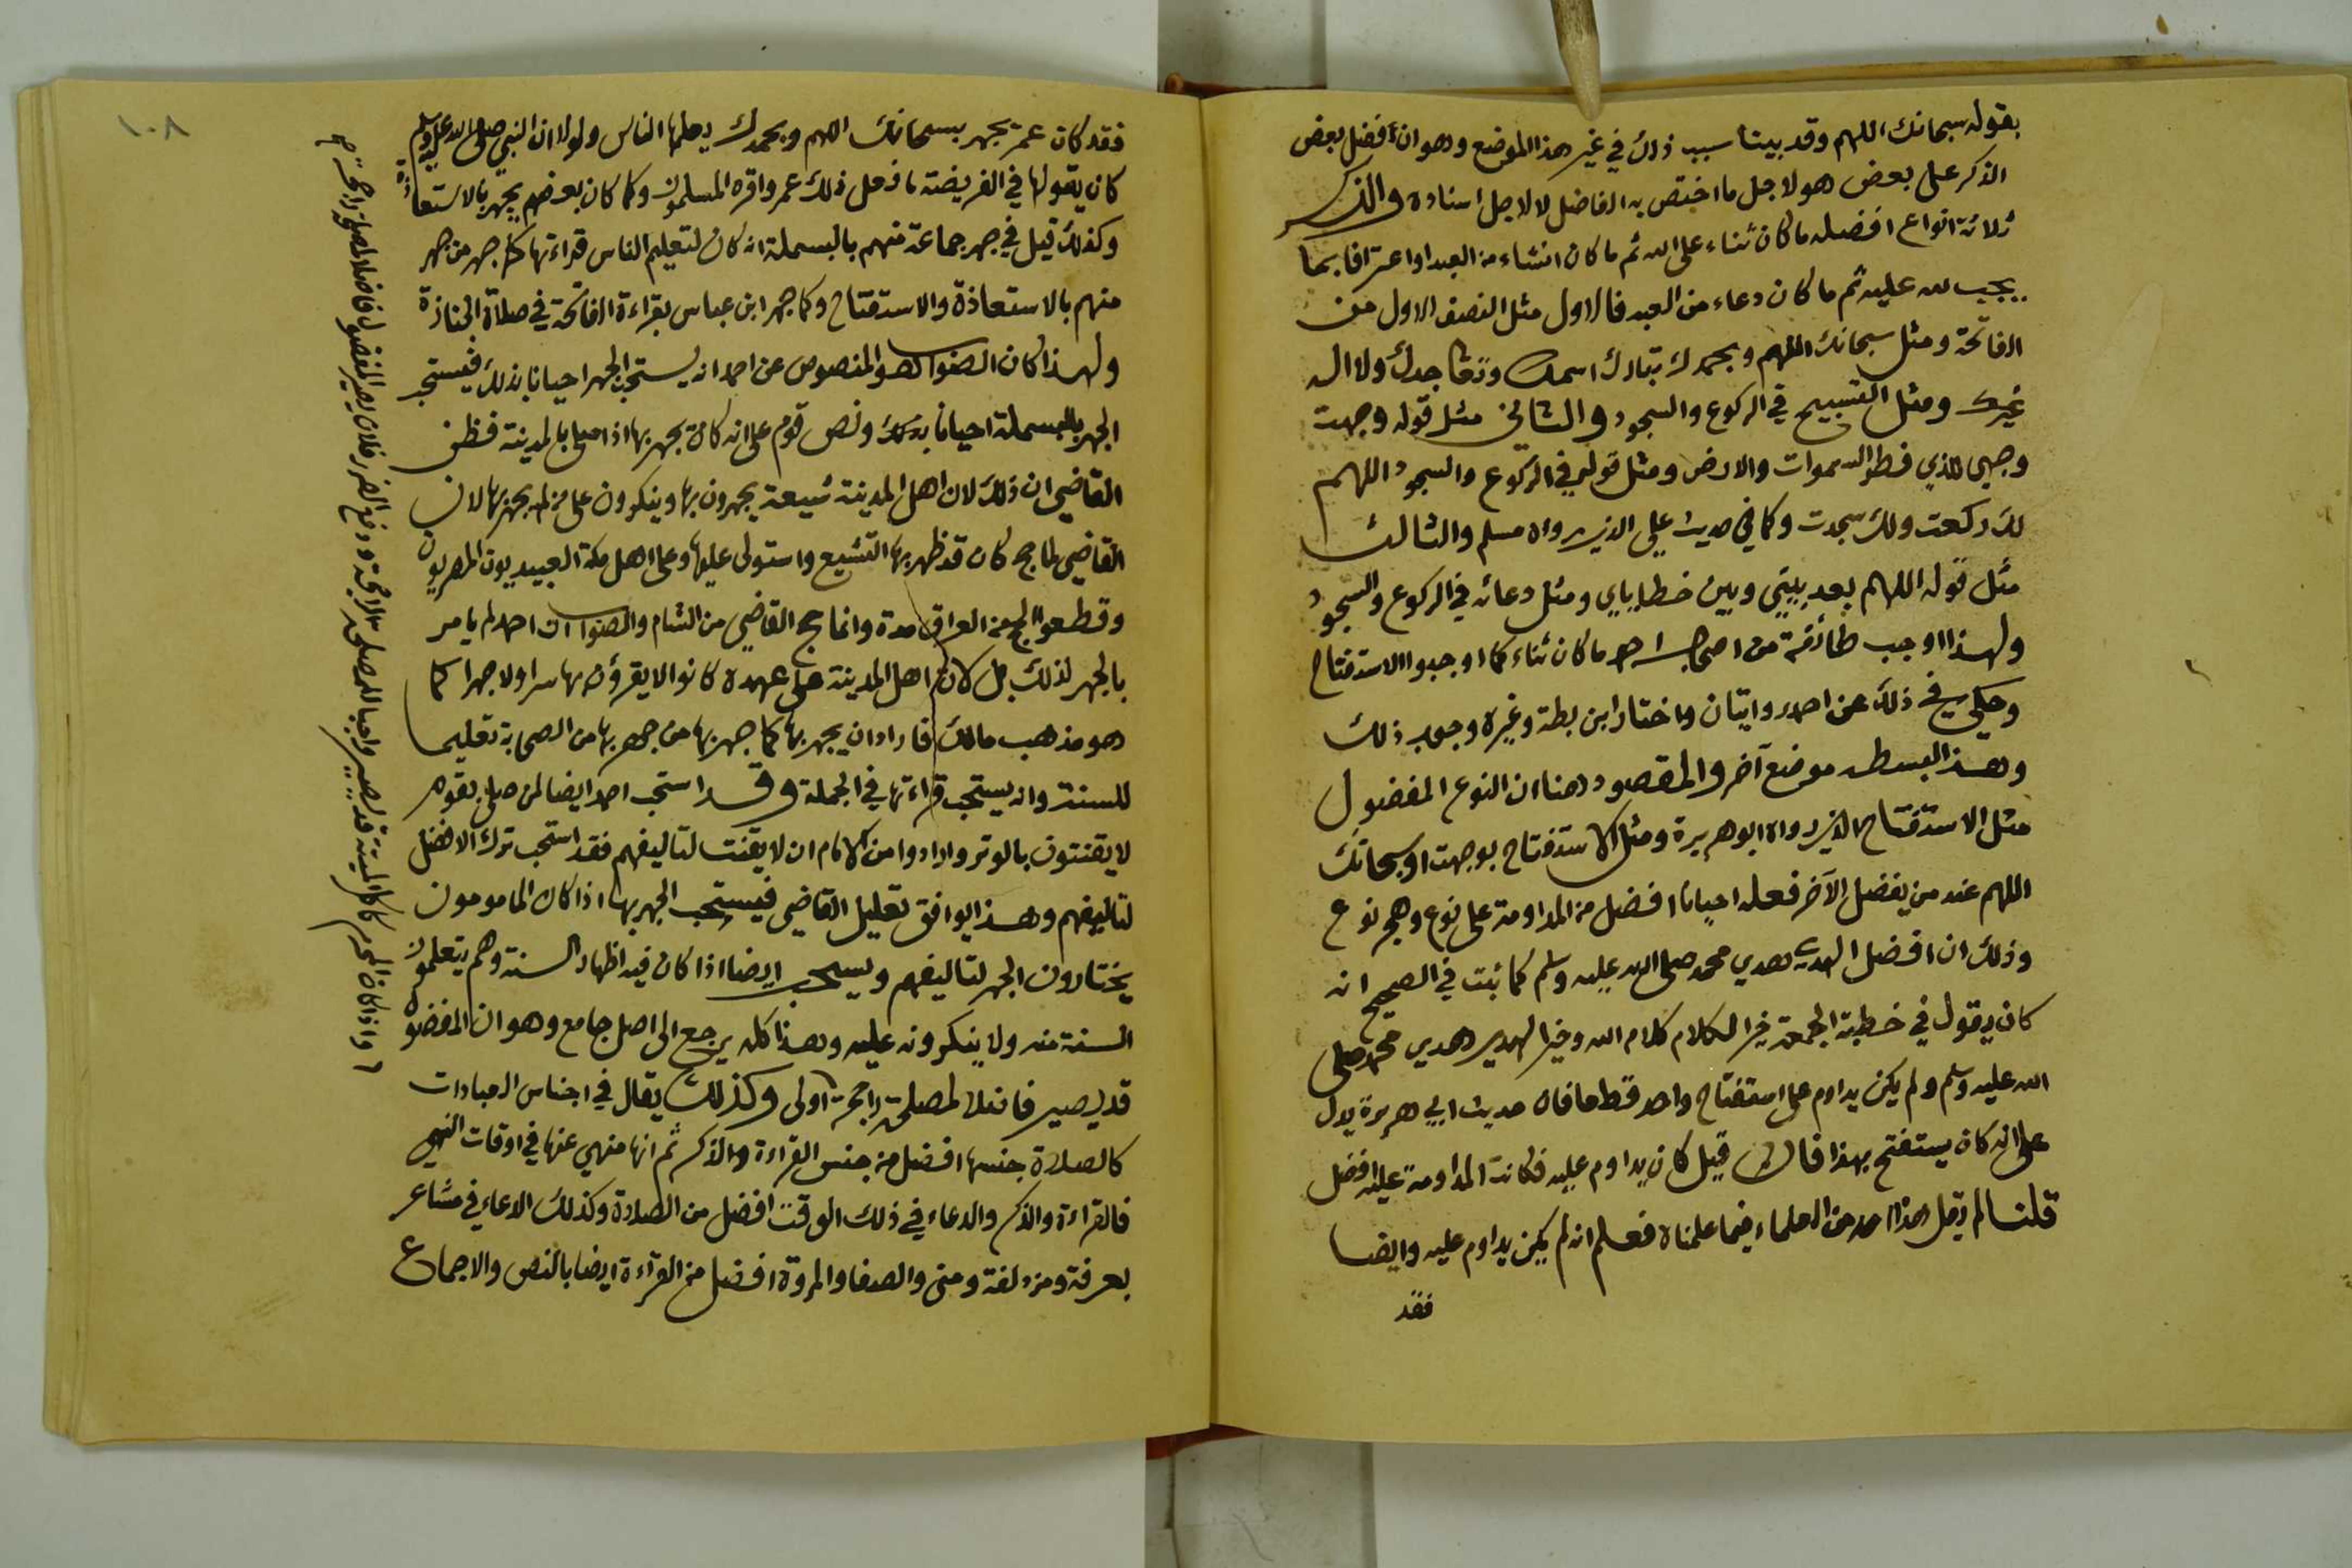 بقوله سبحانك اللهم وقد بينا سبب ذلك في غير هذا الموضع وهو ان أفضل بعض
الذكر على بعض هو لاجل ما اختص به الفاضل لا لاجل اسناده والذكر
ثلاثة انواع افضله ما كان ثناء على الله ثم ما كان انشاء من العبد او اعترافا بما
يجب لله عليه ثم ما كان دعاء من العبد فالاول مثل النصف الاول من
الفاتحة ومثل سبحانك اللهم وبحمدك تبارك اسمك وتعا جدك ولا اله
غيرك ومثل التسبيح في الركوع والسجود والثاني مثل قوله وجهت
وجهي للذي فطر السموات والارض ومثل قوله في الركوع والسجود اللهم
لك ركعت ولك سجدت وكما في حديث علي الذي رواه مسلم والثالث
مثل قوله اللهم بعد بيني وبين خطاياي ومثل دعائه في الركوع والسجود
ولهذا اوجب طائفة من اصحاب احمد ما كان ثناء كما اوجبوا الاستفتاح
وحكي في ذلك عن احمد روايتان واختار ابن بطة وغيره وجوب ذلك
وهذا لبسطه موضع آخر والمقصود هنا ان النوع المفضول
مثل الاستفتاح الذي رواه ابو هريرة ومثل الاستفتاح بوجهت او سبحانك
اللهم عند من يفضل الآخر فعله احيانا افضل من المداومة على نوع وهجر نوع
وذلك ان افضل الهدي هدي محمد صلى الله عليه وسلم كما ثبت في الصحيح انه
كان يقول في خطبة الجمعة خير الكلام كلام الله وخير الهدي هدي محمد صلى
الله عليه وسلم ولم يكن يداوم على استفتاح واحد قط فان حديث ابي هريرة يدل
على انه كان يستفتح بهذا فان قيل كان يداوم عليه فكانت المداومة عليه افضل
قلنا لم يقل هذا احد من العلماء فيما علمناه فعلم انه لم يكن يداوم عليه وايضا
فقد
١٠٨
فقد كان عمر يجهر بسبحانك اللهم وبحمدك يعلمها الناس ولولا ان النبي صلى الله عليه وسلم
كان يقولها في الفريضة ما فعل ذلك عمر واقره المسلمون وكما كان بعضهم يجهر بالاستعاذة
وكذلك قيل في جهر جماعة منهم بالبسملة انه كان لتعليم الناس قراءتها كما جهر من جهر
منهم بالاستعاذة والاستفتاح وكما جهر ابن عباس بقراءة الفاتحة في صلاة الجنازة
ولهذا كان الصواب هو المنصوص عن احمد انه يستحب الجهر احيانا بذلك فيستحب
الجهر بالبسملة احيانا بذلك ونص قوم على انه كان يجهر بها اذا صلى بالمدينة فظن
القاضي ان ذلك لان اهل المدينة شيعة يجهرون بها وينكرون على من لم يجهر بها لان
القاضي لما حج كان قد ظهر بها التشيع واستولى عليها وعلى اهل مكة العبيديون المصريون
وقطعوا الحج من العراق مدة وانما حج القاضي من الشام والصواب ان احمد لم يامر
بالجهر لذلك بل لان اهل المدينة على عهده كانوا لا يقرؤن بها سرا ولا جهرا كما
هو مذهب مالك فاراد ان يجهر بها كما جهر بها من جهر بها من الصحابة تعليما
للسنة وانه يستحب قراءتها في الجملة وقد استحب احمد ايضا لمن صلى بقوم
لا يقنتون بالوتر وارادوا من الامام ان لا يقنت لتاليفهم فقد استحب ترك الافضل
لتاليفهم وهذا يوافق تعليل القاضي فيستحب الجهر بها اذا كان المامومون
يختارون الجهر لتاليفهم ويستحب ايضا اذا كان فيه اظهار السنة وهم يتعلمون
السنة منه ولا ينكرونه عليه وهذا كله يرجع الى اصل جامع وهو ان المفضول
قد يصير فاضلا لمصلحة راجحة اولى وكذلك يقال في اجناس العبادات
كالصلاة جنسها افضل من جنس القراءة والذكر ثم انها منهي عنها في اوقات النهي
فالقراءة والذكر والدعاء في ذلك الوقت افضل من الصلاة وكذلك الدعاء في مشاعر
بعرفة ومزدلفة ومنى والصفا والمروة افضل من القراءة ايضا بالنص والاجماع
واذا كان المحرم كاكل الميتة قد يصير واجبا للمصلحة الراجحة ودفع الضرر فلان يصير المفضول فاضلا لمصلحة راجحة